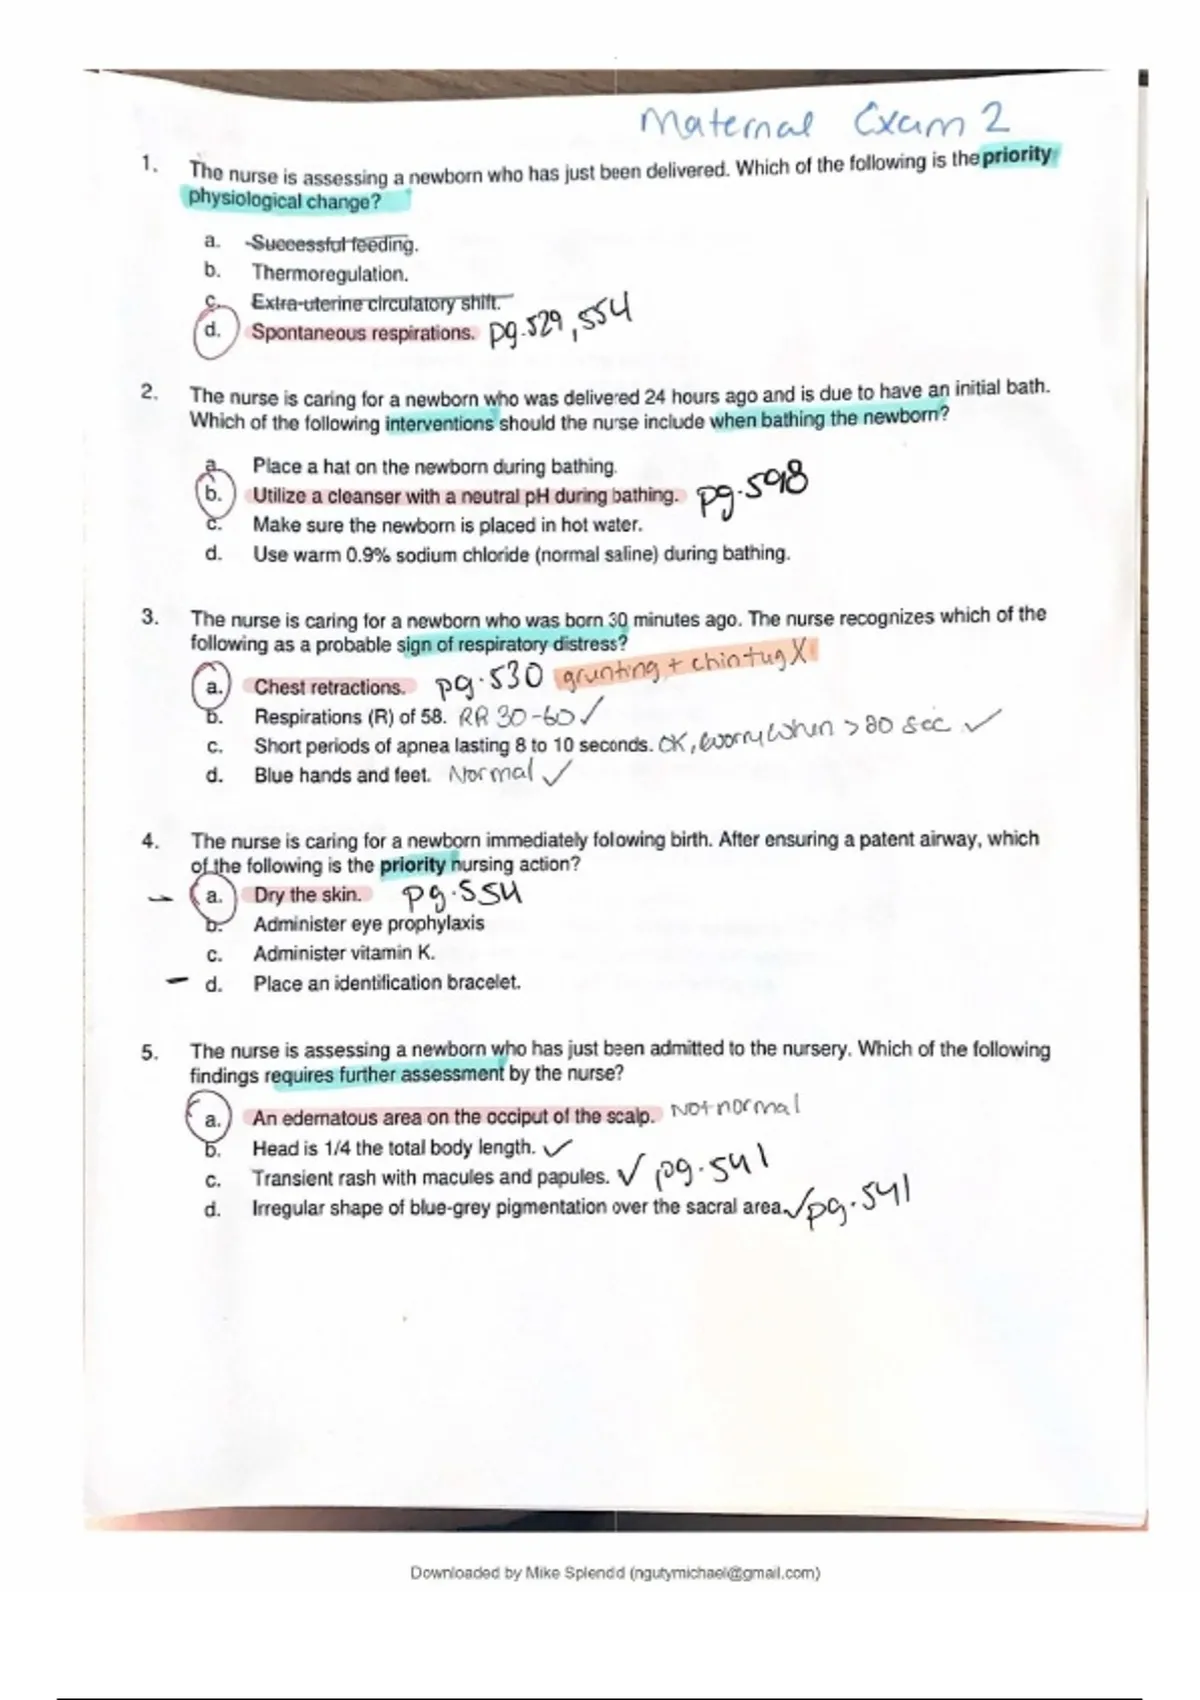 Maternal Exam 2
1. The nurse is assessing a newborn who has just been delivered. Which of the following is the priority
physiological change?
a. Successful feeding.
b. Thermoregulation.
c. Extra-uterine circulatory shift.
d. Spontaneous respirations. pg.529, 554
2. The nurse is caring for a newborn who was delivered 24 hours ago and is due to have an initial bath.
Which of the following interventions should the nurse include when bathing the newborn?
a. Place a hat on the newborn during bathing.
b. Utilize a cleanser with a neutral pH during bathing. pg.598
c. Make sure the newborn is placed in hot water.
d. Use warm 0.9% sodium chloride (normal saline) during bathing.
3. The nurse is caring for a newborn who was born 30 minutes ago. The nurse recognizes which of the
following as a probable sign of respiratory distress?
a. Chest retractions. pg.530 grunting + chin tug X
b. Respirations (R) of 58. RR 30-60 ✓
c. Short periods of apnea lasting 8 to 10 seconds. OK, worry when > 20 sec ✓
d. Blue hands and feet. Normal ✓
4. The nurse is caring for a newborn immediately folowing birth. After ensuring a patent airway, which
of the following is the priority nursing action?
a. Dry the skin. pg.554
b. Administer eye prophylaxis
c. Administer vitamin K.
d. Place an identification bracelet.
5. The nurse is assessing a newborn who has just been admitted to the nursery. Which of the following
findings requires further assessment by the nurse?
a. An edematous area on the occiput of the scalp. Not normal
b. Head is 1/4 the total body length. ✓
c. Transient rash with macules and papules. ✓ pg.541
d. Irregular shape of blue-grey pigmentation over the sacral area. ✓ pg.541
Downloaded by Mike Splendid (ngutymichael@gmail.com)